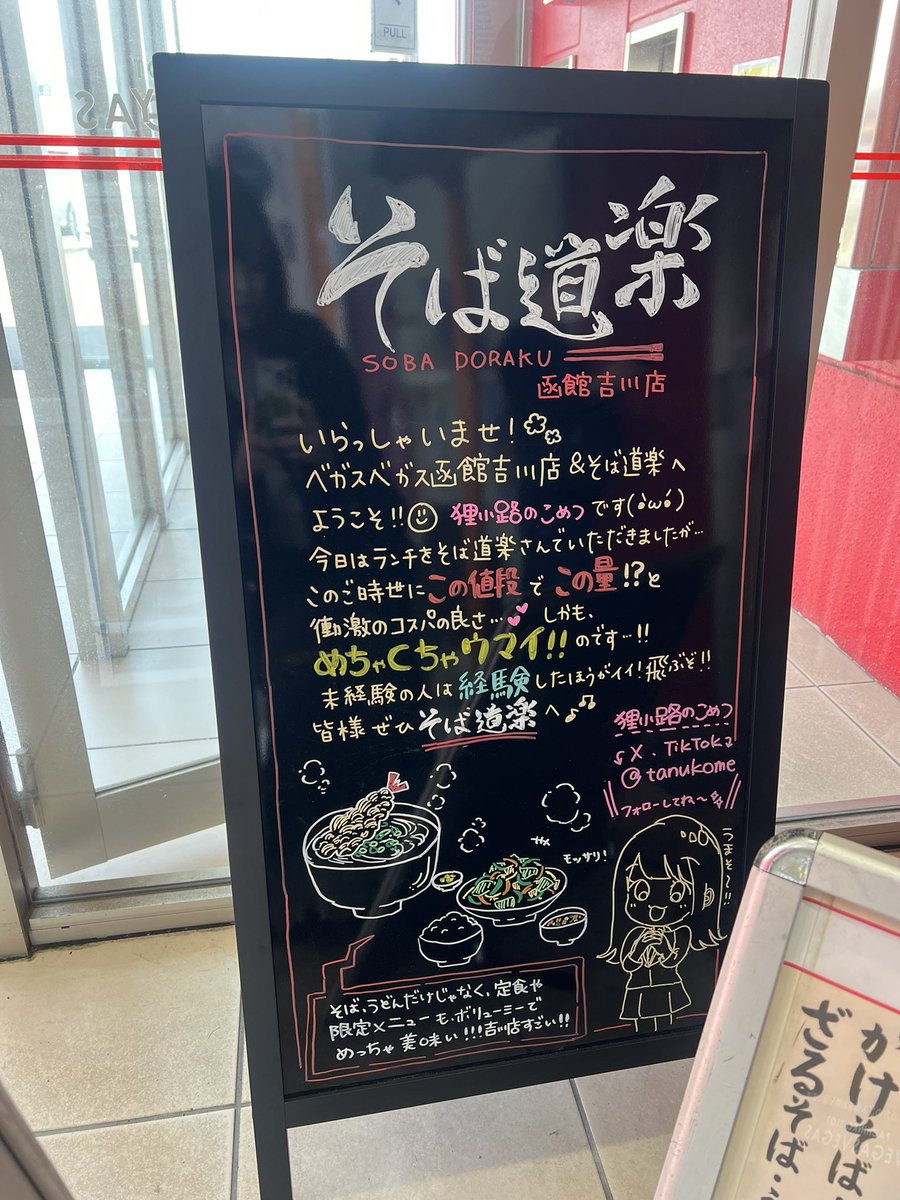 PULL
そば道楽
SOBA DORAKU
函館吉川店
いらっしゃいませ!
ベガスベガス函館吉川店&そば道楽へ
ようこそ!!狸小路のこめつです(óωò)
今日はランチをそば道楽さんでいただきましたが…
このご時世にこの値段でこの量!?と
働激のコスパの良さ… しかも、
めちゃくちゃウマイ!!のです…!!
未経験の人は経験したほうがイイ!飛ぶぞ!!
皆様ぜひそば道楽へ♪♫
狸小路のこめつ
X、TikTok
@tanukome
\\フォローしてね〜//
うまそ〜!!
モッサリ!
そば、うどんだけじゃなく、定食や
限定メニューも、ボリューミーで
めっちゃ美味い!!!吉川店すごい!!
かけそば
ざるそば